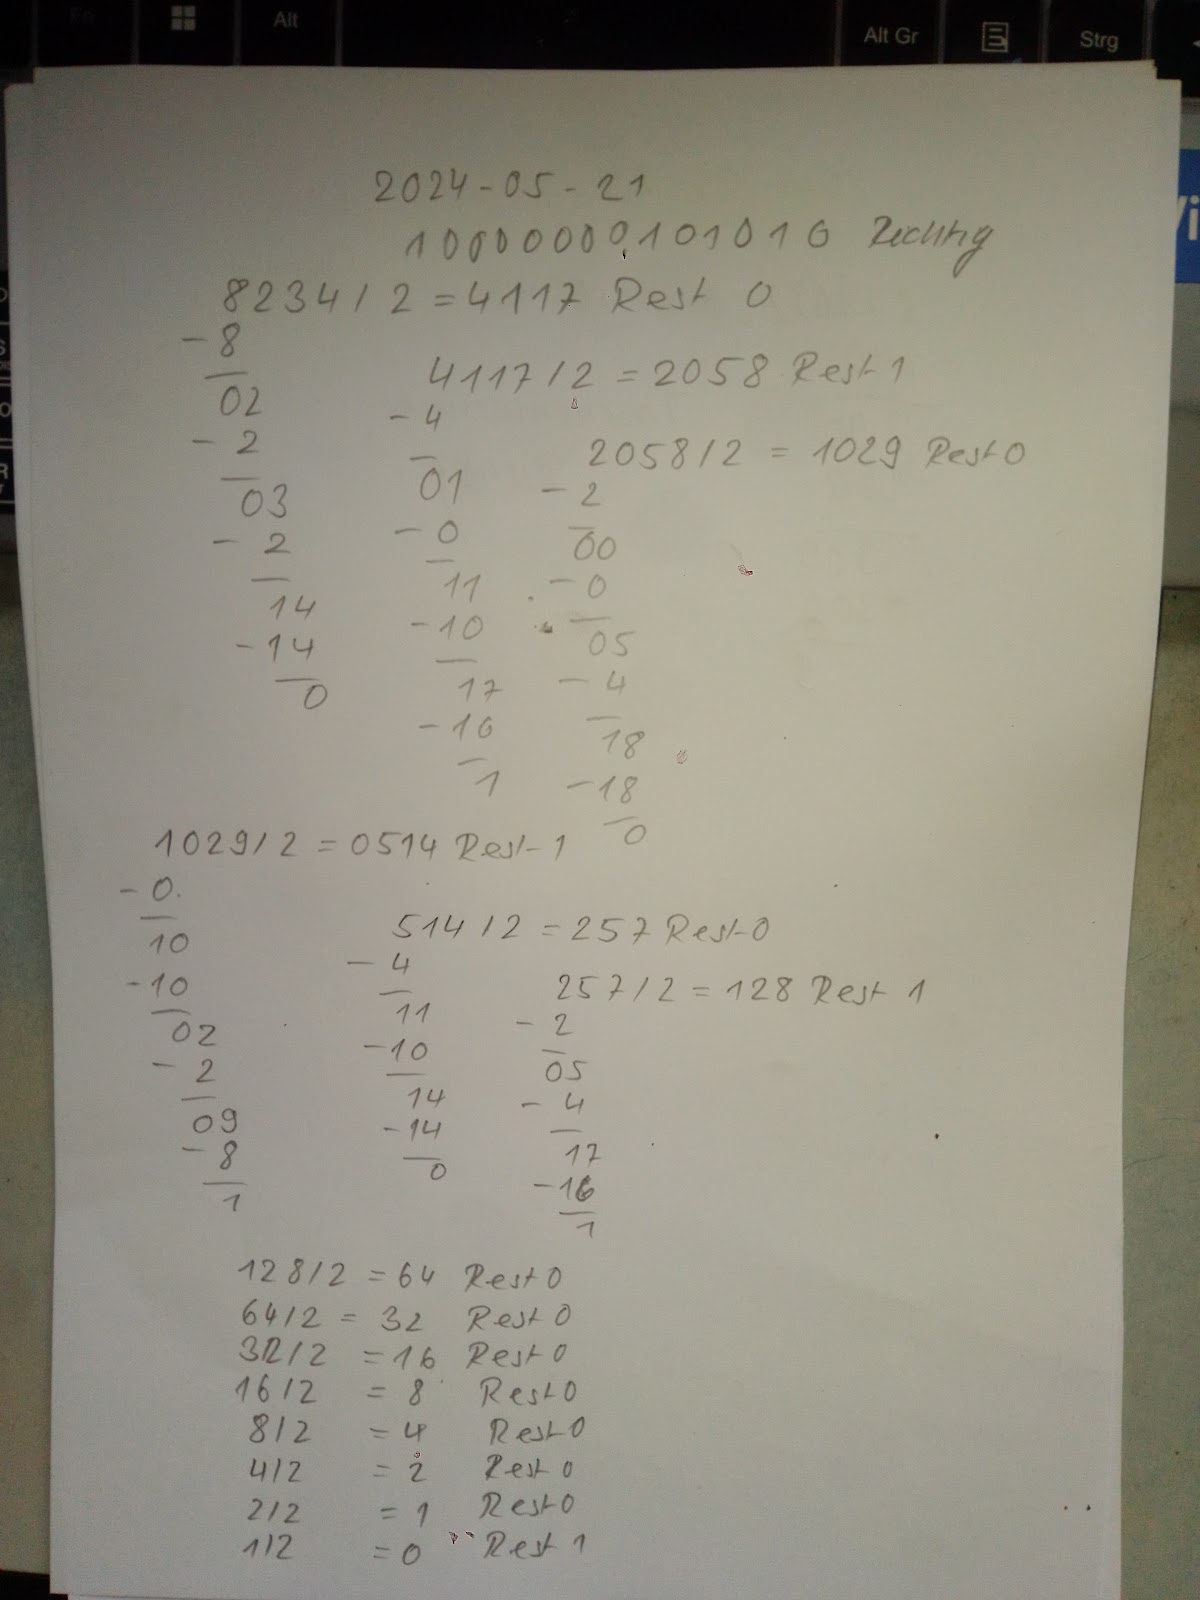 Alt Alt Gr Strg
2024-05-21
10000000101010 Richtig
8234/2=4117 Rest 0
-8
02
-2
03
-2
14
-14
0
4117/2=2058 Rest 1
-4
01
-0
11
-10
17
-16
1
2058/2=1029 Rest 0
-2
00
-0
05
-4
18
-18
0
1029/2=0514 Rest 1
-0
10
-10
02
-2
09
-8
1
514/2=257 Rest 0
-4
11
-10
14
-14
0
257/2=128 Rest 1
-2
05
-4
17
-16
1
128/2=64 Rest 0
64/2=32 Rest 0
32/2=16 Rest 0
16/2=8 Rest 0
8/2=4 Rest 0
4/2=2 Rest 0
2/2=1 Rest 0
1/2=0 Rest 1